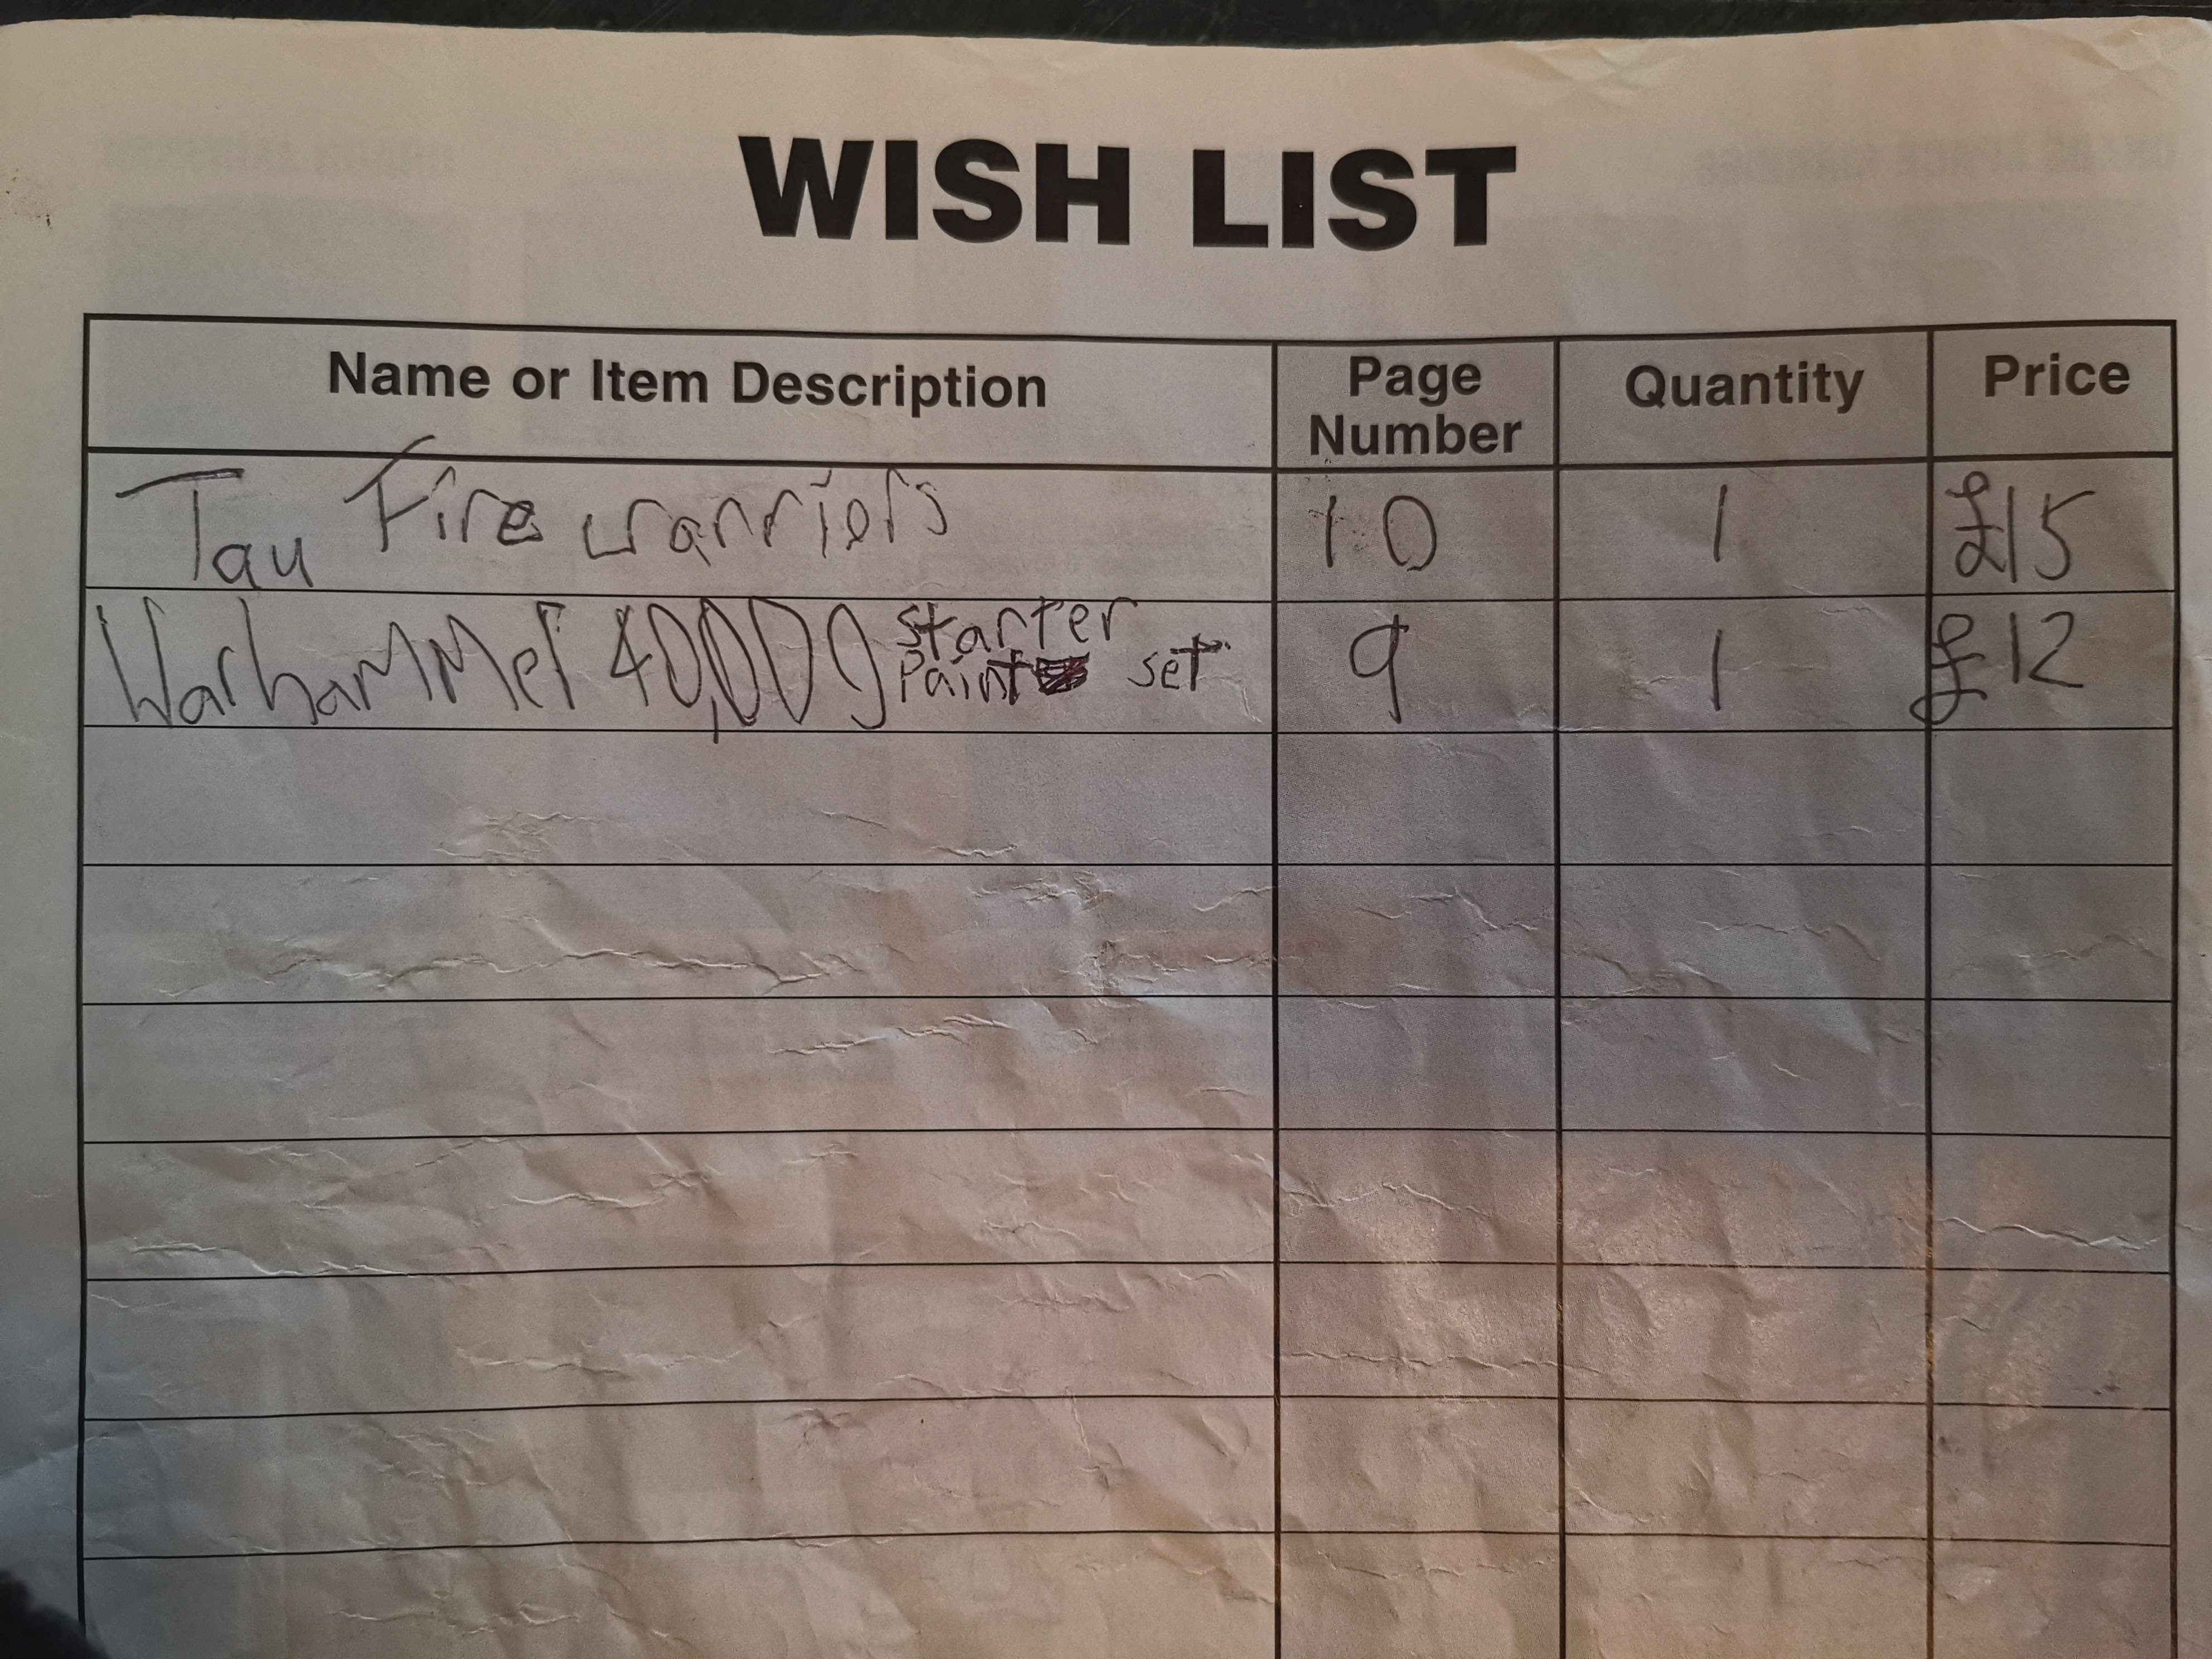 WISH LIST
Name or Item Description Page Number Quantity Price
Tau Fire warriors 10 1 £15
Warhammer 40,000 starter paint set 9 1 £12